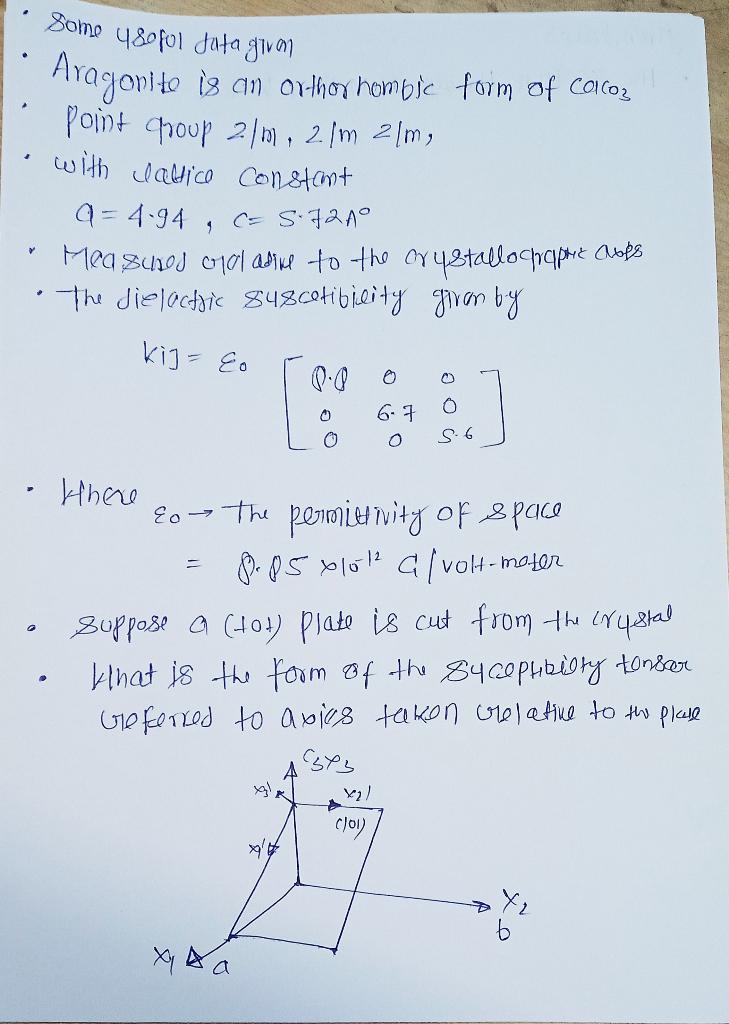 · Some useful data given
· Aragonite is an orthorhombic form of CaCO3
· Point group 2/m, 2/m 2/m,
· with lattice constant
a = 4.94 , c = 5.72 A°
· Measured relative to the crystallographic axes
· The dielectric suscetibility given by
Kij = ε0 [ 8.8 0 0
0 6.7 0
0 0 5.6 ]
· Where
ε0 → The permittivity of space
= 8.85 x10-12 C/volt-meter
· Suppose a (101) plate is cut from the crystal
· What is the form of the suceptibility tensor
referred to axies taken relative to the plate
C3X3
X3'
X2'
(101)
X1'
X2
b
X1
a